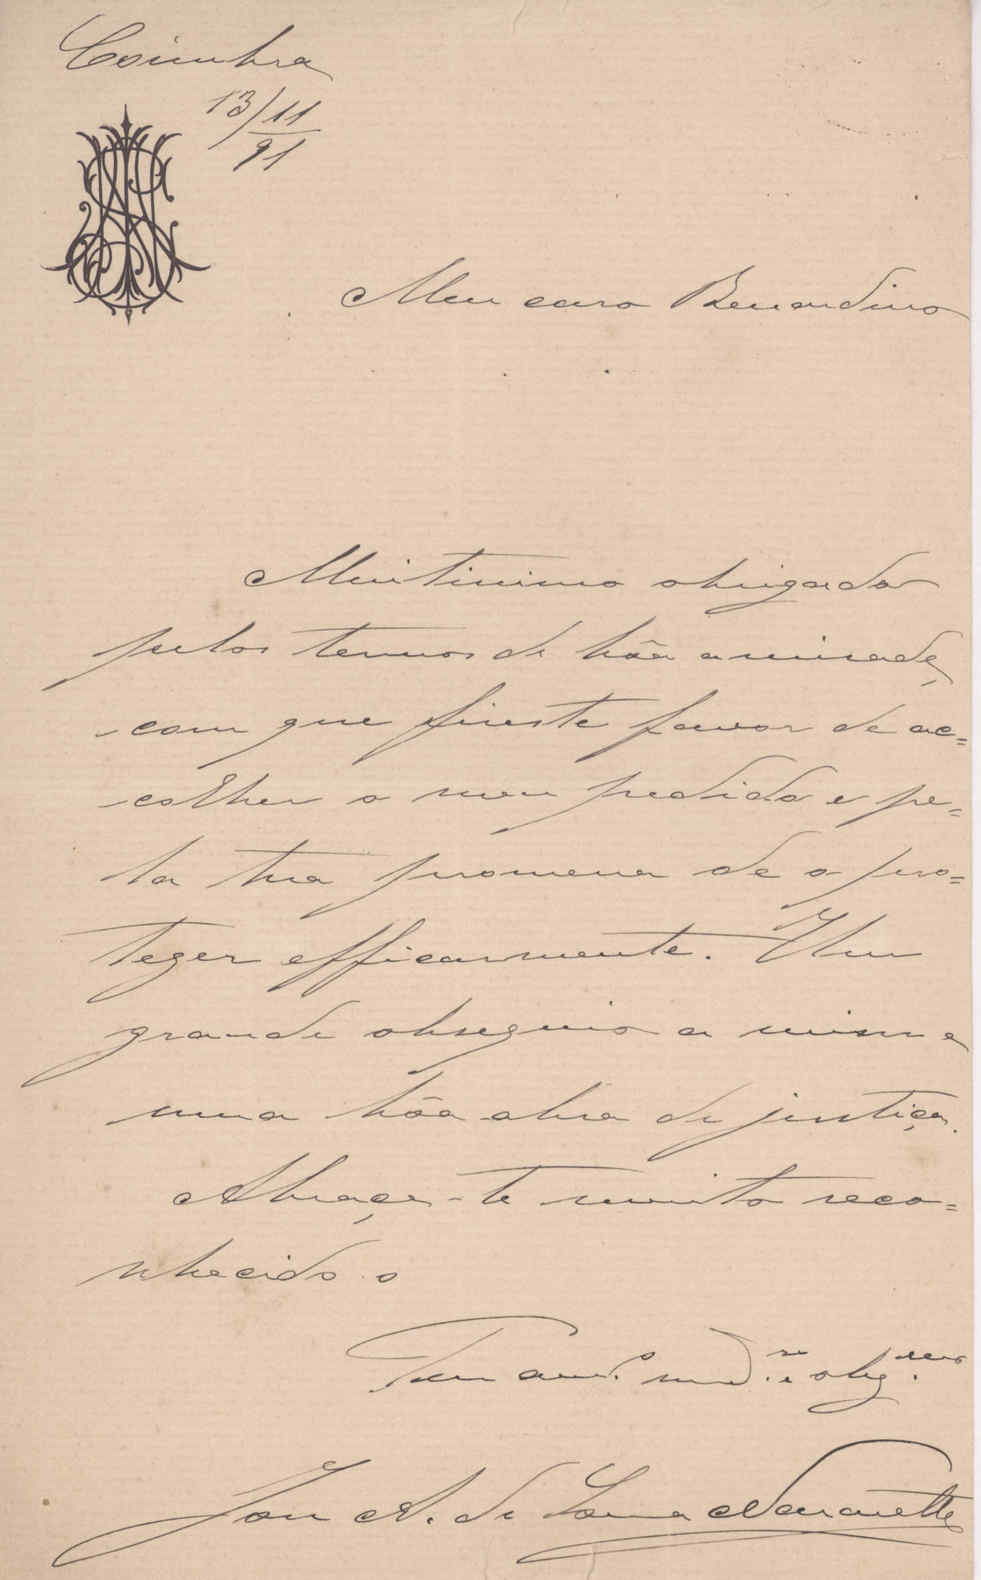 Coimbra
13/11
91
Meu caro Bernardino
Muitissimo obrigado
pelos termos de bôa amisade,
com que fizeste favor de ac=
colher o meu pedido e pe=
la tua promessa de o pro=
teger efficazmente. Um
grande obsequio a mim e
uma bôa obra de justiça.
Abraça-te muito reco=
nhecido o
Teu am.º m.d.re e obrig.mo
José A. de Sousa Nazareth